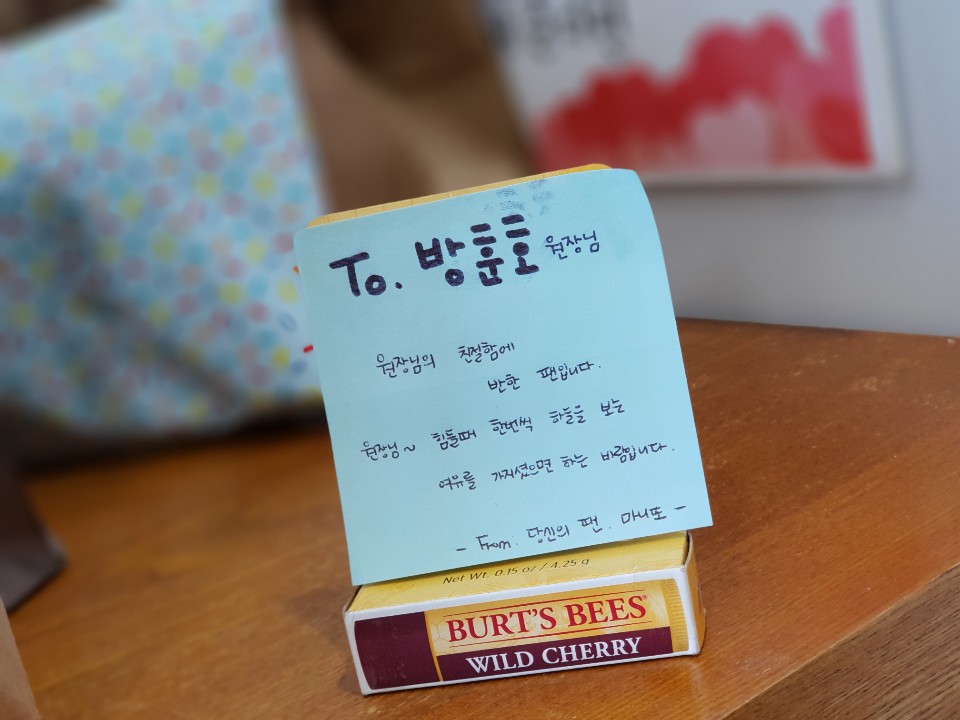 To. 방훈호 원장님
원장님의 친절함에
반한 팬입니다.
원장님~ 힘들때 한번씩 하늘을 보는
여유를 가지셨으면 하는 바람입니다.
- From. 당신의 팬. 마니또 -
Net Wt. 0.15 oz / 4.25 g
BURT'S BEES®
WILD CHERRY